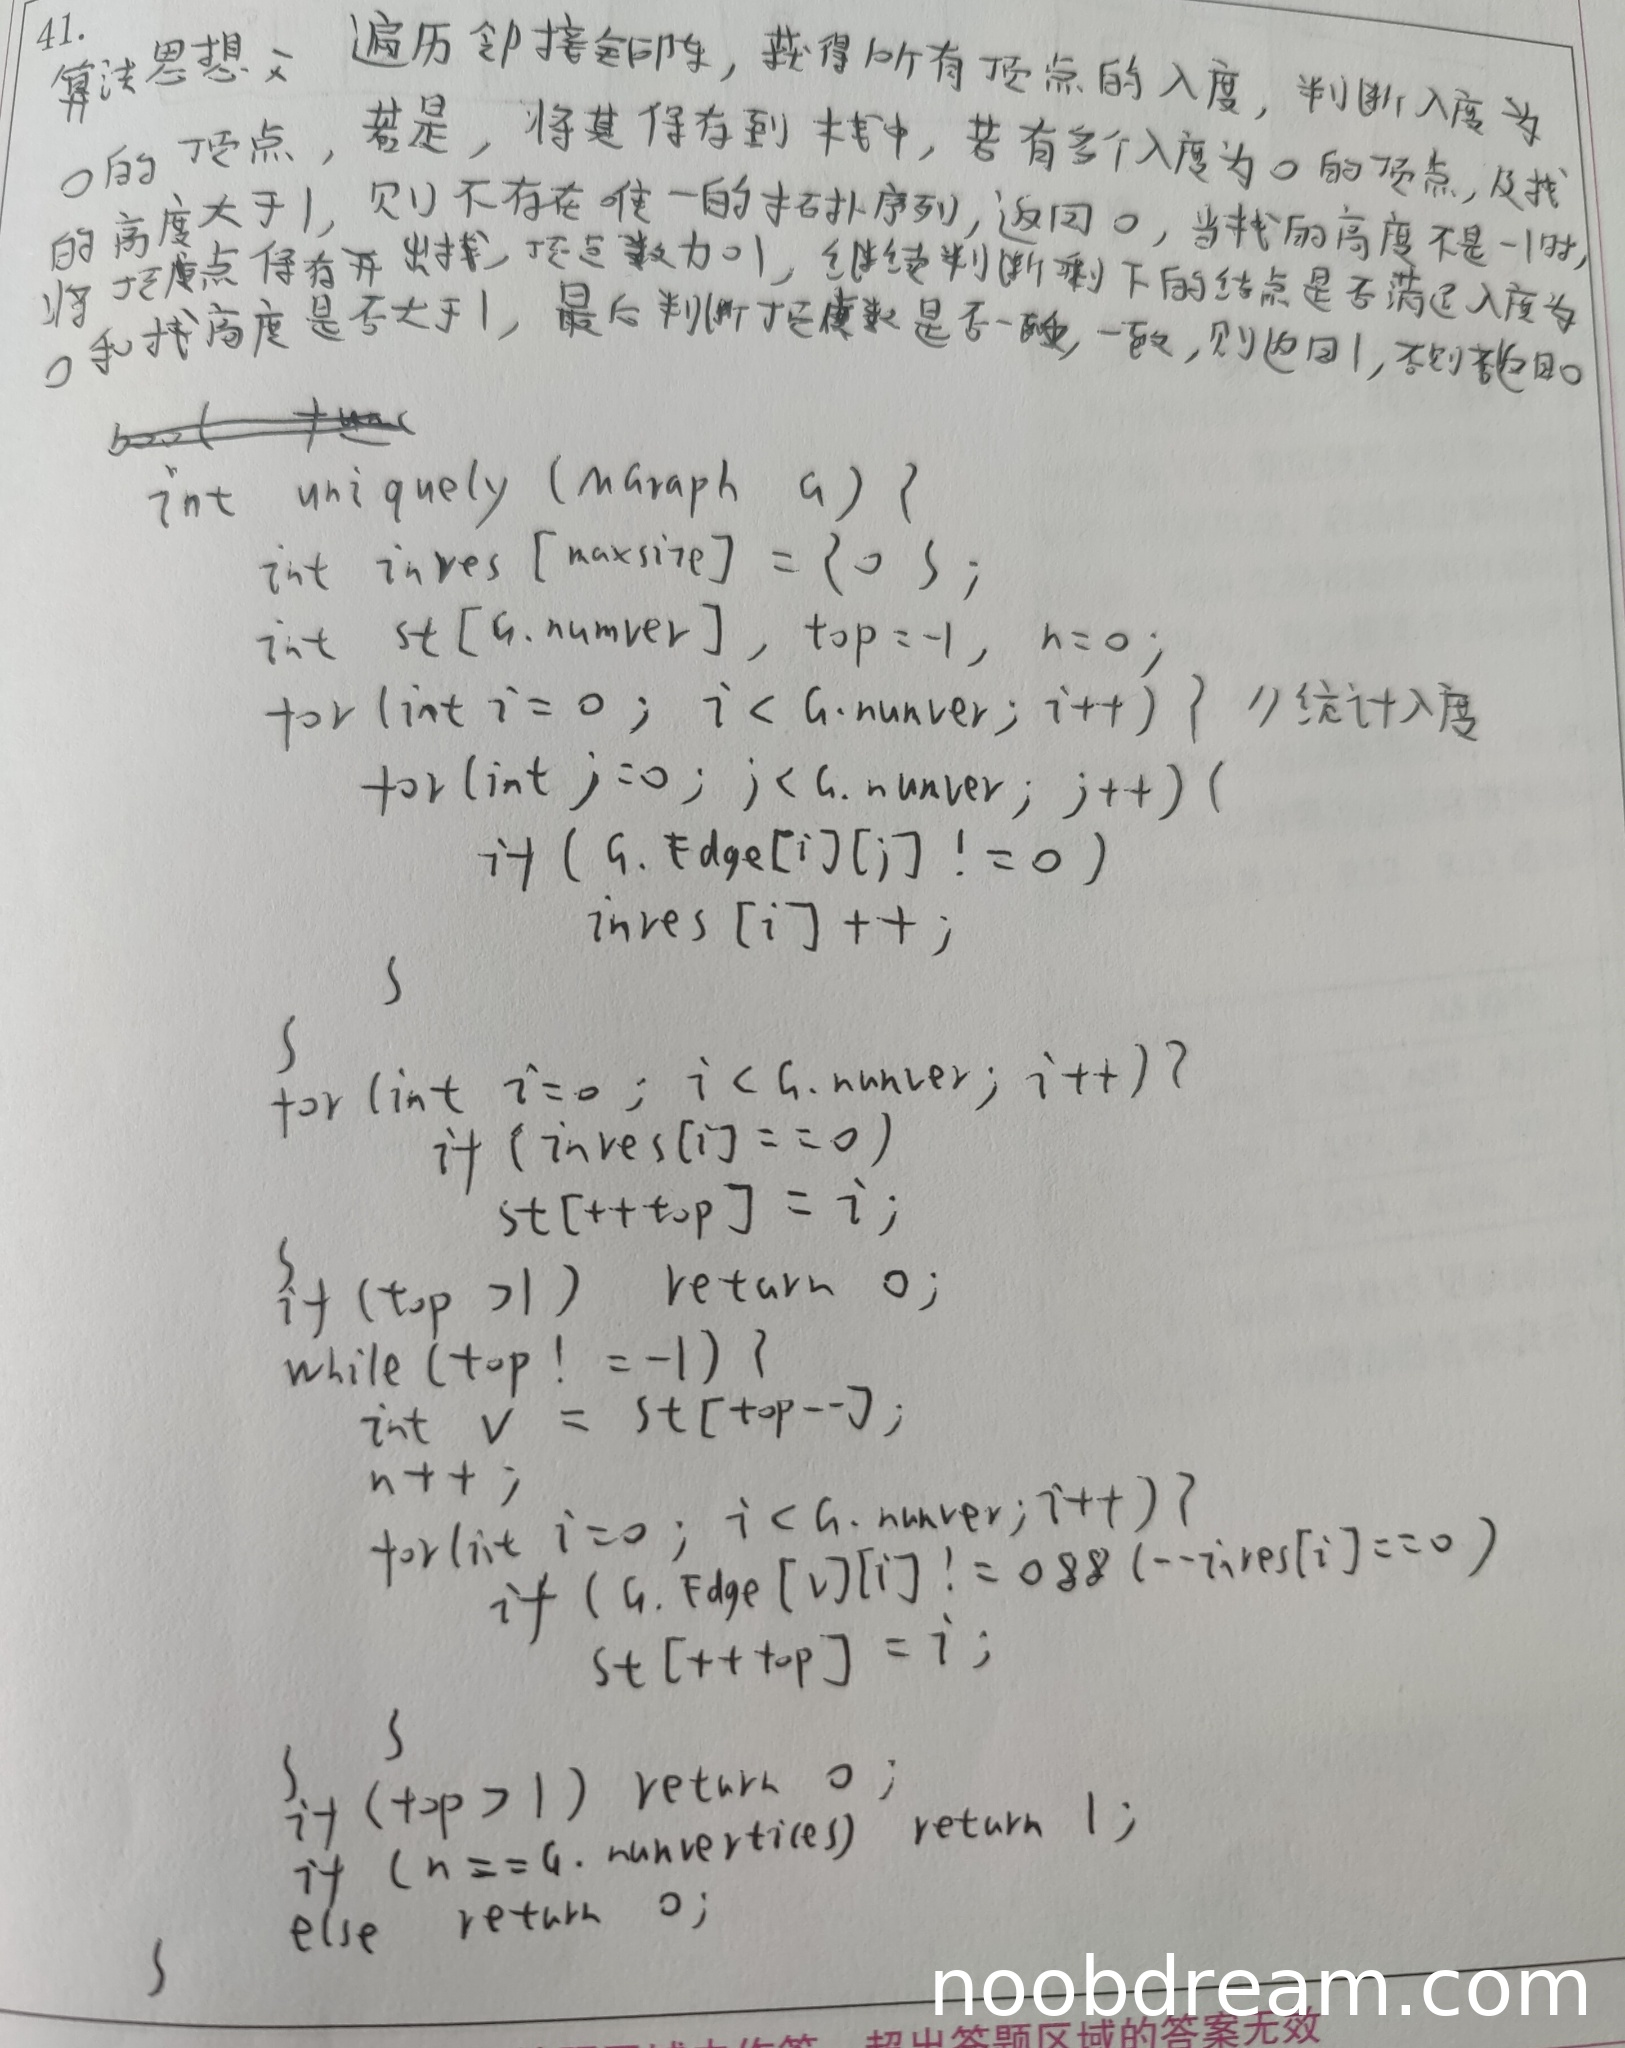 41.
算法思想: 遍历邻接矩阵,获得所有顶点的入度,判断入度为
0的顶点,若是,将其保存到栈中,若有多个入度为0的顶点,及栈
的高度大于1,则不存在唯一的拓扑序列,返回0,当栈的高度不是-1时,
将顶点保存并出栈,顶点数加01,继续判断剩下的结点是否满足入度为
0和栈高度是否大于1,最后判断顶点数是否一致,一致,则返回1,否则返回0
int uniquely (MGraph G) {
int inres [maxsize] = {0};
int st[G.numver], top=-1, n=0;
for(int i=0; i<G.numver; i++) { //统计入度
for(int j=0; j<G.numver; j++) {
if (G.Edge[i][j] != 0)
inres[i]++;
}
}
for(int i=0; i<G.numver; i++) {
if (inres[i]==0)
st[++top] = i;
}
if (top >1) return 0;
while (top != -1) {
int v = st[top--];
n++;
for(int i=0; i<G.numver; i++) {
if (G.Edge[v][i] != 0 && (--inres[i]==0)
st[++top] = i;
}
}
if (top>1) return 0;
if (n==G.numvertices) return 1;
else return 0;
}
noobdream.com
超出答题区域的答案无效